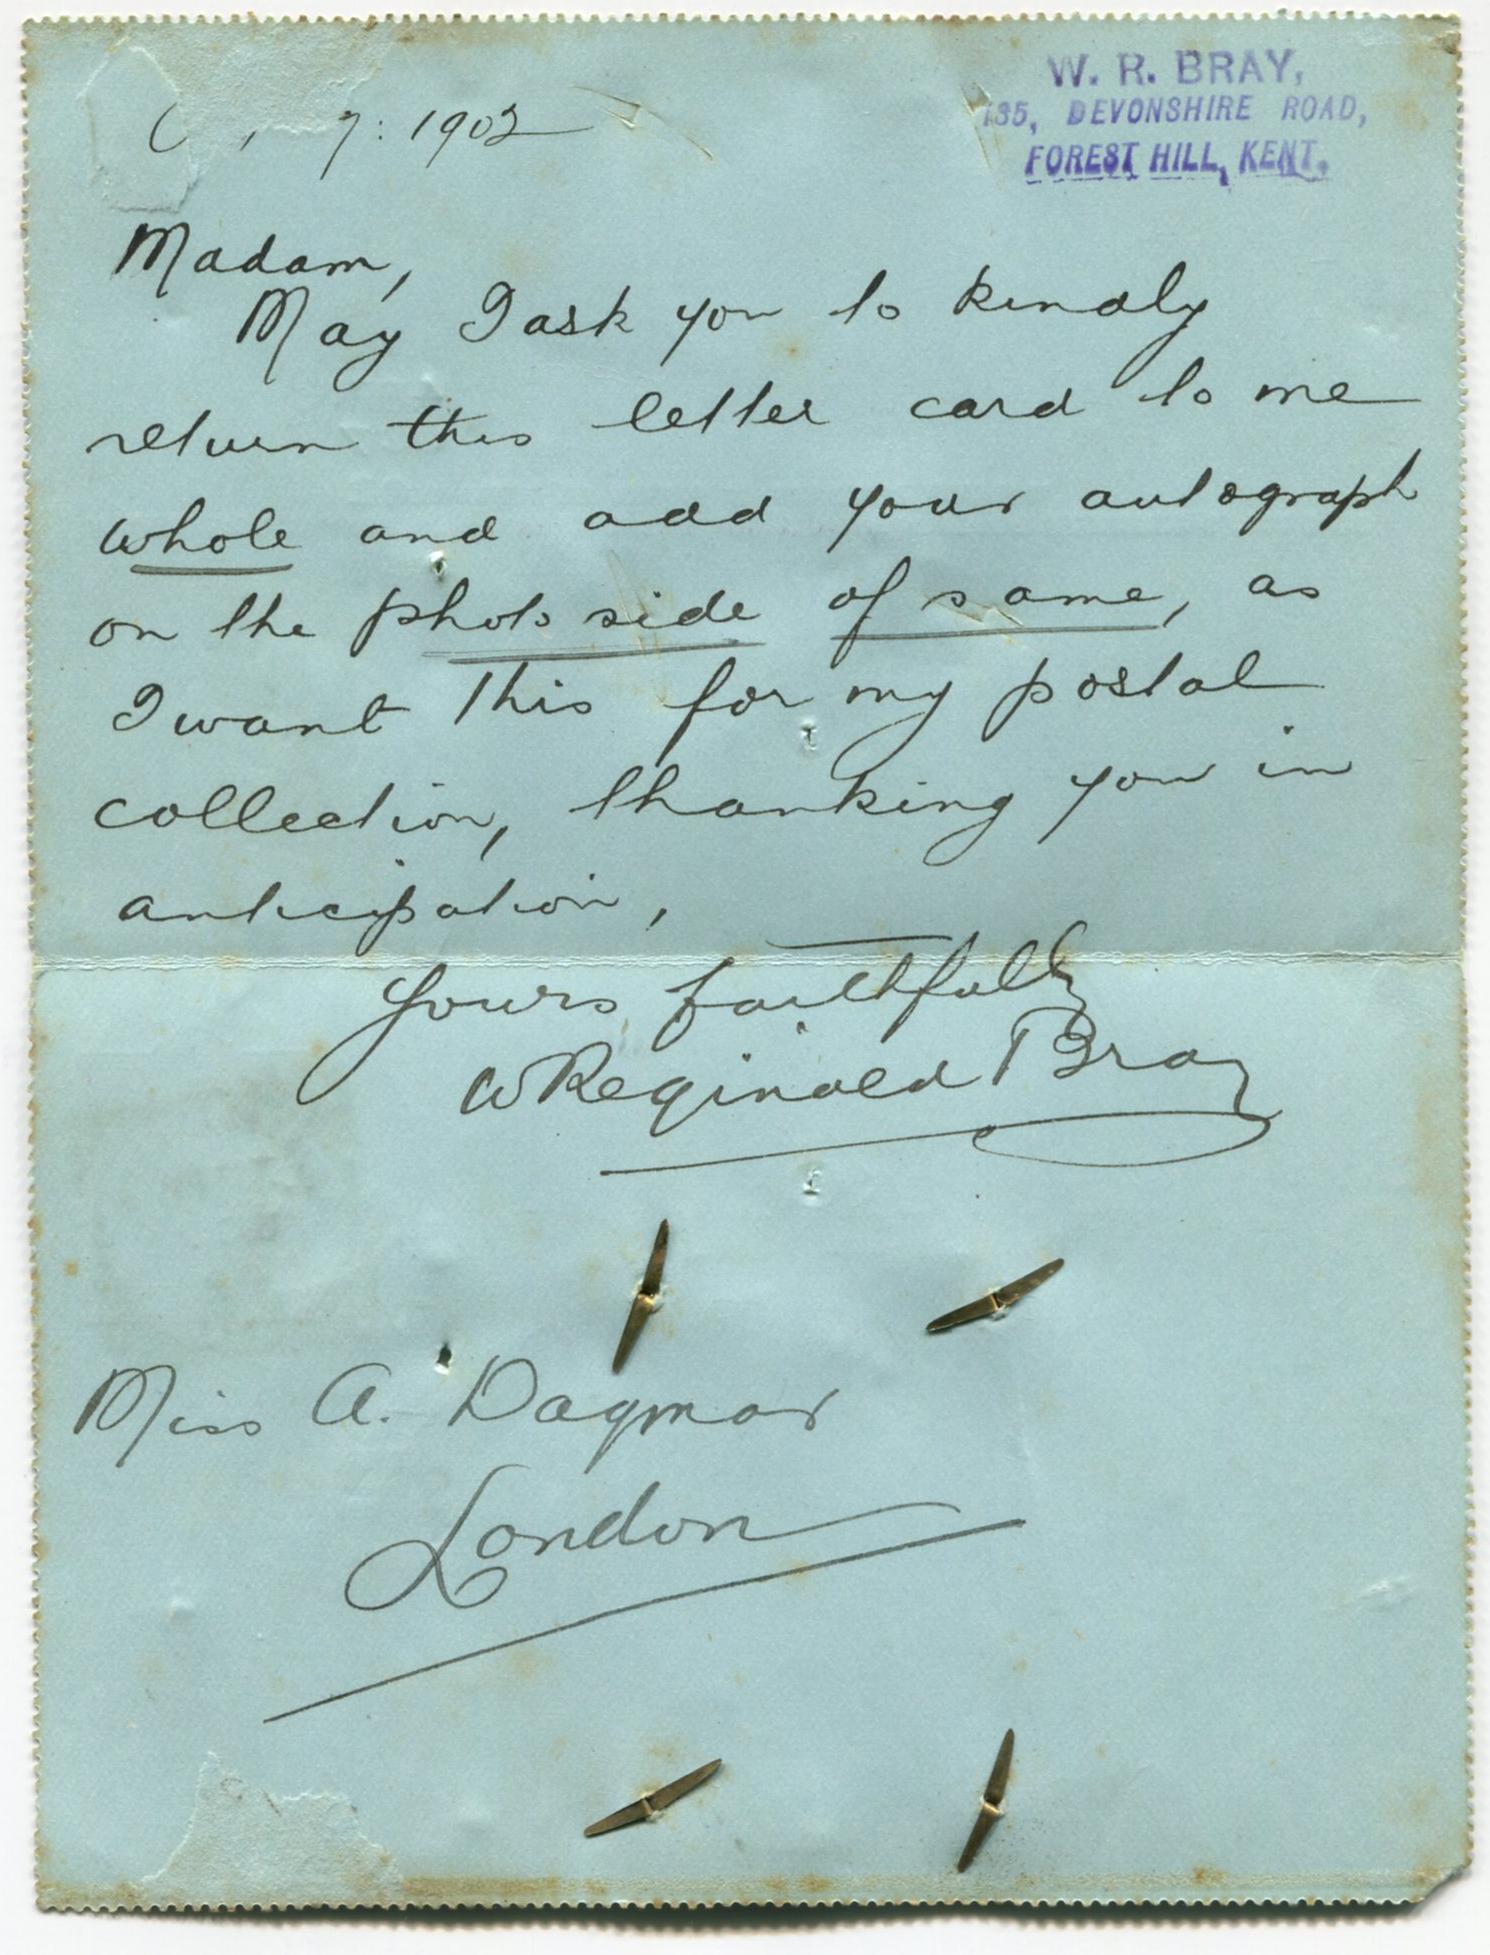 W. R. BRAY,
135, DEVONSHIRE ROAD,
FOREST HILL, KENT.
7: 1902
Madam,
May I ask you to kindly
return this letter card to me
whole and add your autograph
on the photo side of same, as
I want this for my postal
collection, thanking you in
anticipation,
Yours faithfully
W Reginald Bray
Miss A. Dagmar
London